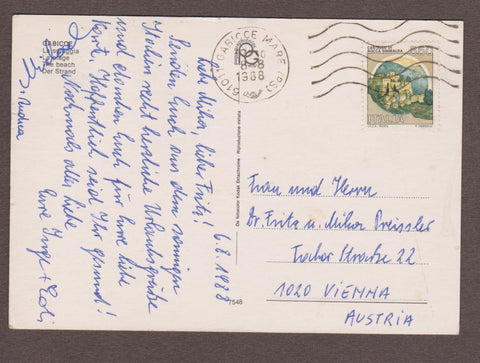 GABICCE
La spiaggia
La plage
The beach
Der Strand
6.8.1988
Liebe Mihor, lieber Fritz!
Senden Euch aus dem sonnigen
Italien recht herzliche Urlaubsgrüße
und danken Euch für Eure liebe
Karte. Hoffentlich seid Ihr gesund!
Nochmals alles Liebe
Eure Inge + Edi
Andrea
De Noivallor Kodak Ektachrome - Riproduzione vietata
7548
61011 GABICCE MARE (PS)
1988
CASTELLO DI
ROCCA SINIBALDA
ITALIA
Frau und Herrn
Dr. Fritz u. Mihor Preissler
Tabor Straße 22
1020 VIENNA
AUSTRIA